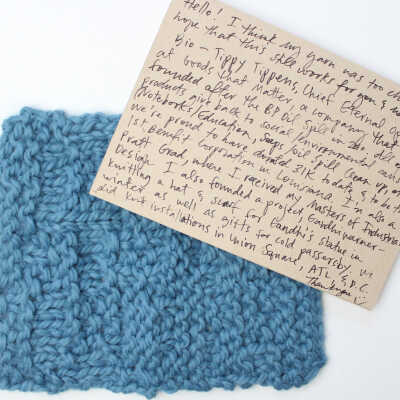 Hello! I think my yarn was too ch
hope that this still works for you &
Bio - Tippy Tippens, Chief Eternal
at Goods that Matter, a company that
founded after the BP Oil Spill in
products give back to social, Environmental, and
(Notebook: Education, Soaps: oil spill clean up
We're proud to have donated $11K to date & to be
1st Benefit Corporation in Louisiana. I'm also a
Pratt Grad, where I received my Masters of Industrial
Design. I also founded a project Gandhiwarmer -
knitting a hat & scarf for Gandhi's statue in
winter as well as gifts for cold passersby. we
did knit installations in Union Square, ATL & D.C.
Thank you!